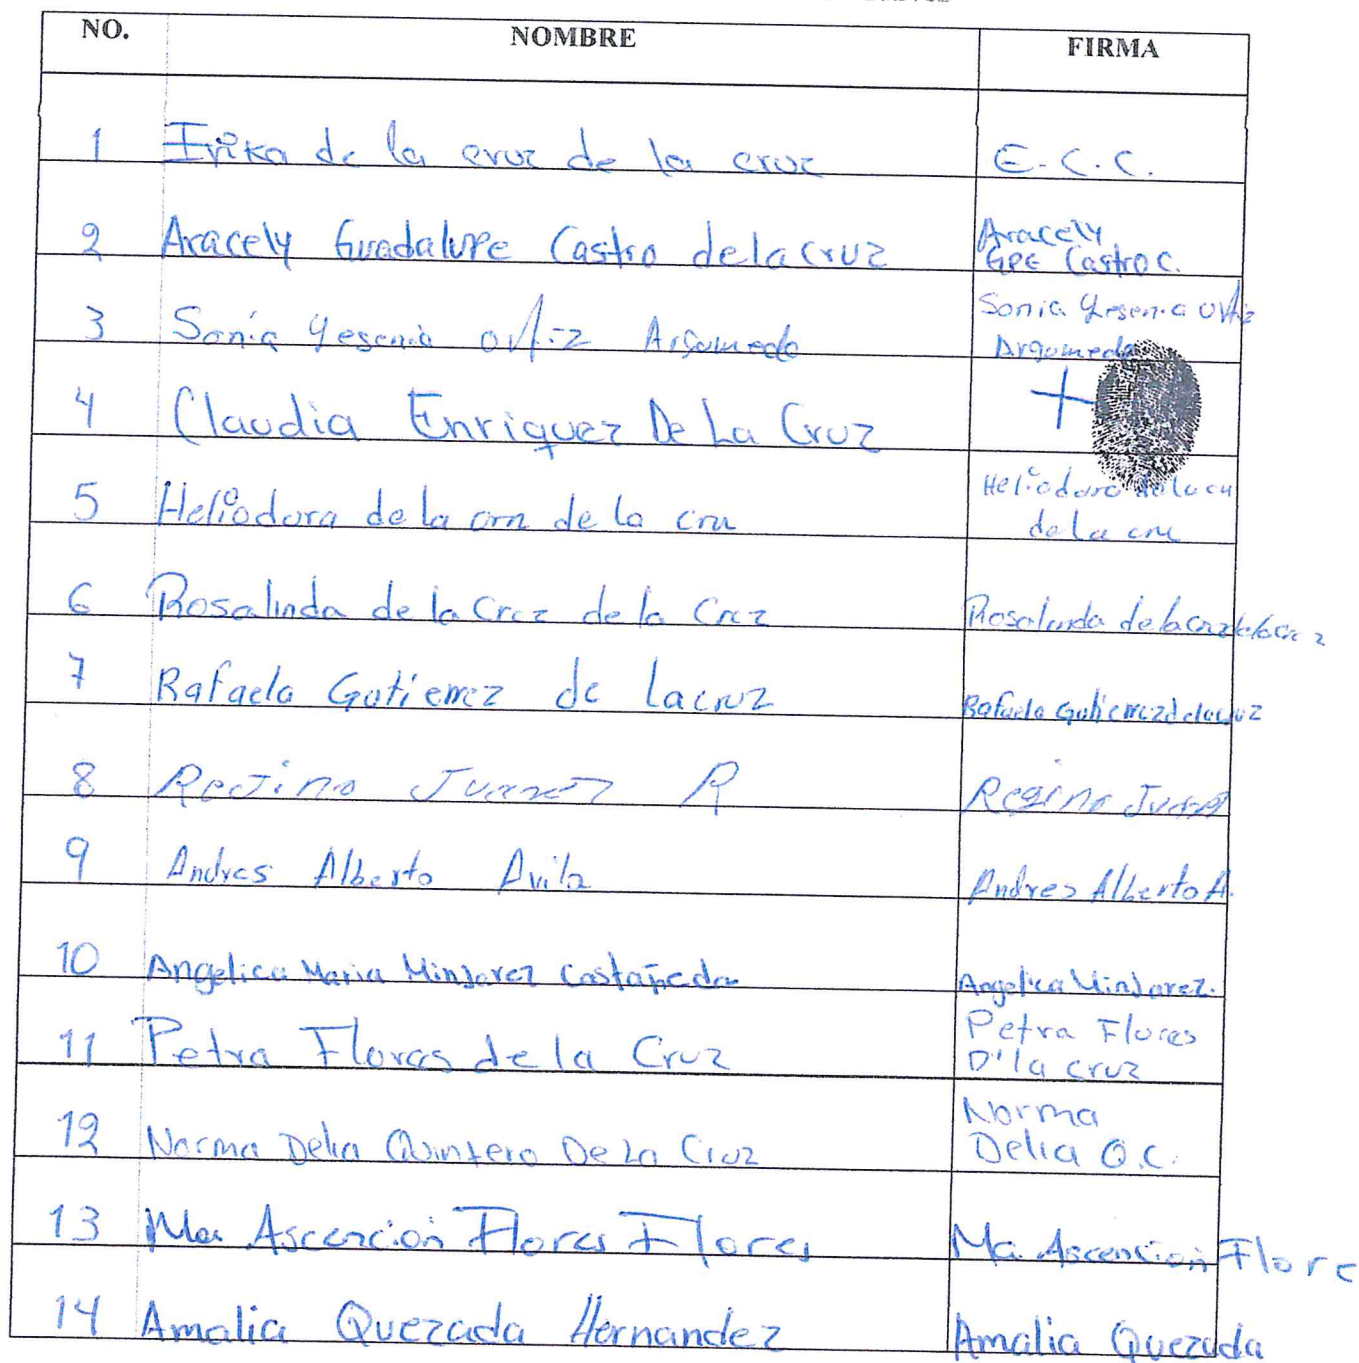 NO. NOMBRE FIRMA
1 Erika de la cruz de la cruz E.C.C.
2 Aracely Guadalupe Castro de la cruz Aracely
GPE Castro C.
3 Sonia Yesenia Ortiz Argumedo Sonia Yesenia Ortiz
Argumedo
4 Claudia Enriquez De La Cruz +
5 Heliodora de la cru de la cru Heliodora de la cru
de la cru
6 Rosalinda de la Cruz de la Cruz Rosalinda de la cruz de la cruz
7 Rafaela Gutierrez de la cruz Rafaela Gutierrez de la cruz
8 Rejino Juarez R Regino Juarez
9 Andres Alberto Avila Andres Alberto A.
10 Angelica Maria Minjarez Castañeda Angelica Minjarez.
11 Petra Flores de la Cruz Petra Flores
D'la cruz
12 Norma Delia Quintero De La Cruz Norma
Delia Q.C.
13 Ma Ascencion Flores Flores Ma Ascencion Flore
14 Amalia Quezada Hernandez Amalia Quezada